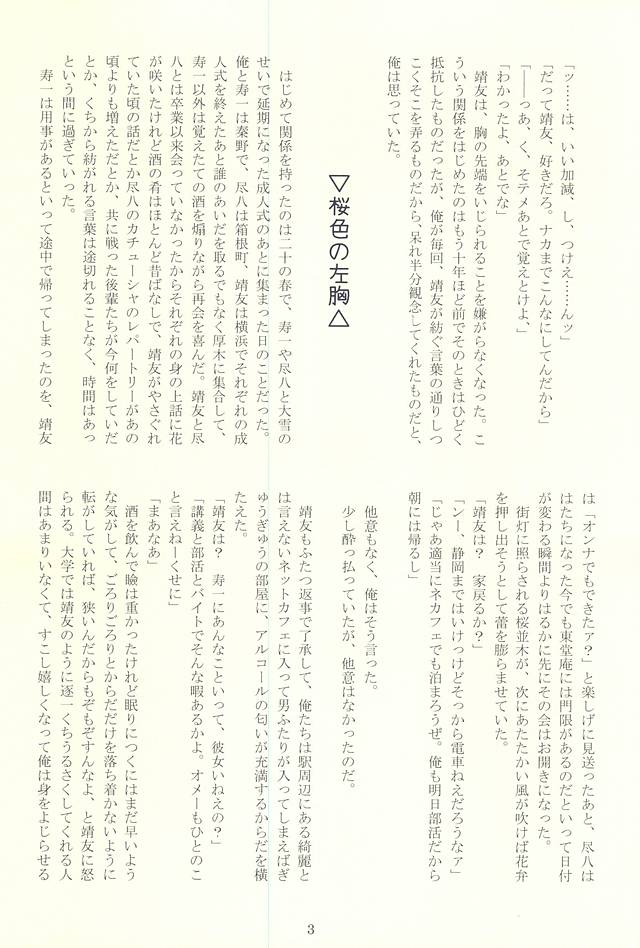 「ッ……は、いい加減、し、つけえ……んッ」
「だって靖友、好きだろ。ナカまでこんなにしてんだから」
「――っあ、く、そテメあとで覚えとけよ、
「わかったよ、あとでな」
　靖友は、胸の先端をいじられることを嫌がらなくなった。こ
ういう関係をはじめたのはもう十年ほど前でそのときはひどく
抵抗したものだったが、俺が毎回、靖友が紡ぐ言葉の通りしつ
こくそこを弄るものだから、呆れ半分観念してくれたものだと、
俺は思っていた。
▽桜色の左胸△
　はじめて関係を持ったのは二十の春で、寿一や尽八と大雪の
せいで延期になった成人式のあとに集まった日のことだった。
俺と寿一は秦野で、尽八は箱根町、靖友は横浜でそれぞれの成
人式を終えたあと誰のあいだを取るでもなく厚木に集合して、
寿一以外は覚えたての酒を煽りながら再会を喜んだ。靖友と尽
八とは卒業以来会っていなかったからそれぞれの身の上話に花
が咲いたけれど酒の肴はほとんど昔ばなしで、靖友がやさぐれ
ていた頃の話だとか尽八のカチューシャのレパートリーがあの
頃よりも増えただとか、共に戦った後輩たちが今何をしていだ
とか、くちから紡がれる言葉は途切れることなく、時間はあっ
という間に過ぎていった。
　寿一は用事があるといって途中で帰ってしまったのを、靖友
は「オンナでもできたァ？」と楽しげに見送ったあと、尽八は
はたちになった今でも東堂庵には門限があるのだといって日付
が変わる瞬間よりはるかに先にその会はお開きになった。
　街灯に照らされる桜並木が、次にあたたかい風が吹けば花弁
を押し出そうとして蕾を膨らませていた。
「靖友は？　家戻るか？」
「ンー、静岡まではいけっけどそっから電車ねえだろうなァ」
「じゃあ適当にネカフェでも泊まろうぜ。俺も明日部活だから
朝には帰るし」
　他意もなく、俺はそう言った。
　少し酔っ払っていたが、他意はなかったのだ。
　靖友もふたつ返事で了承して、俺たちは駅周辺にある綺麗と
は言えないネットカフェに入って男ふたりが入ってしまえばぎ
ゅうぎゅうの部屋に、アルコールの匂いが充満するからだを横
たえた。
「靖友は？　寿一にあんなこといって、彼女いねえの？」
「講義と部活とバイトでそんな暇あるかよ。オメーもひとのこ
と言えねーくせに」
「まあなあ」
　酒を飲んで瞼は重かったけれど眠りにつくにはまだ早いよう
な気がして、ごろりごろりとからだだけを落ち着かないように
転がしていれば、狭いんだからもぞもぞすんなよ、と靖友に怒
られる。大学では靖友のように逐一くちうるさくしてくれる人
間はあまりいなくて、すこし嬉しくなって俺は身をよじらせる
3